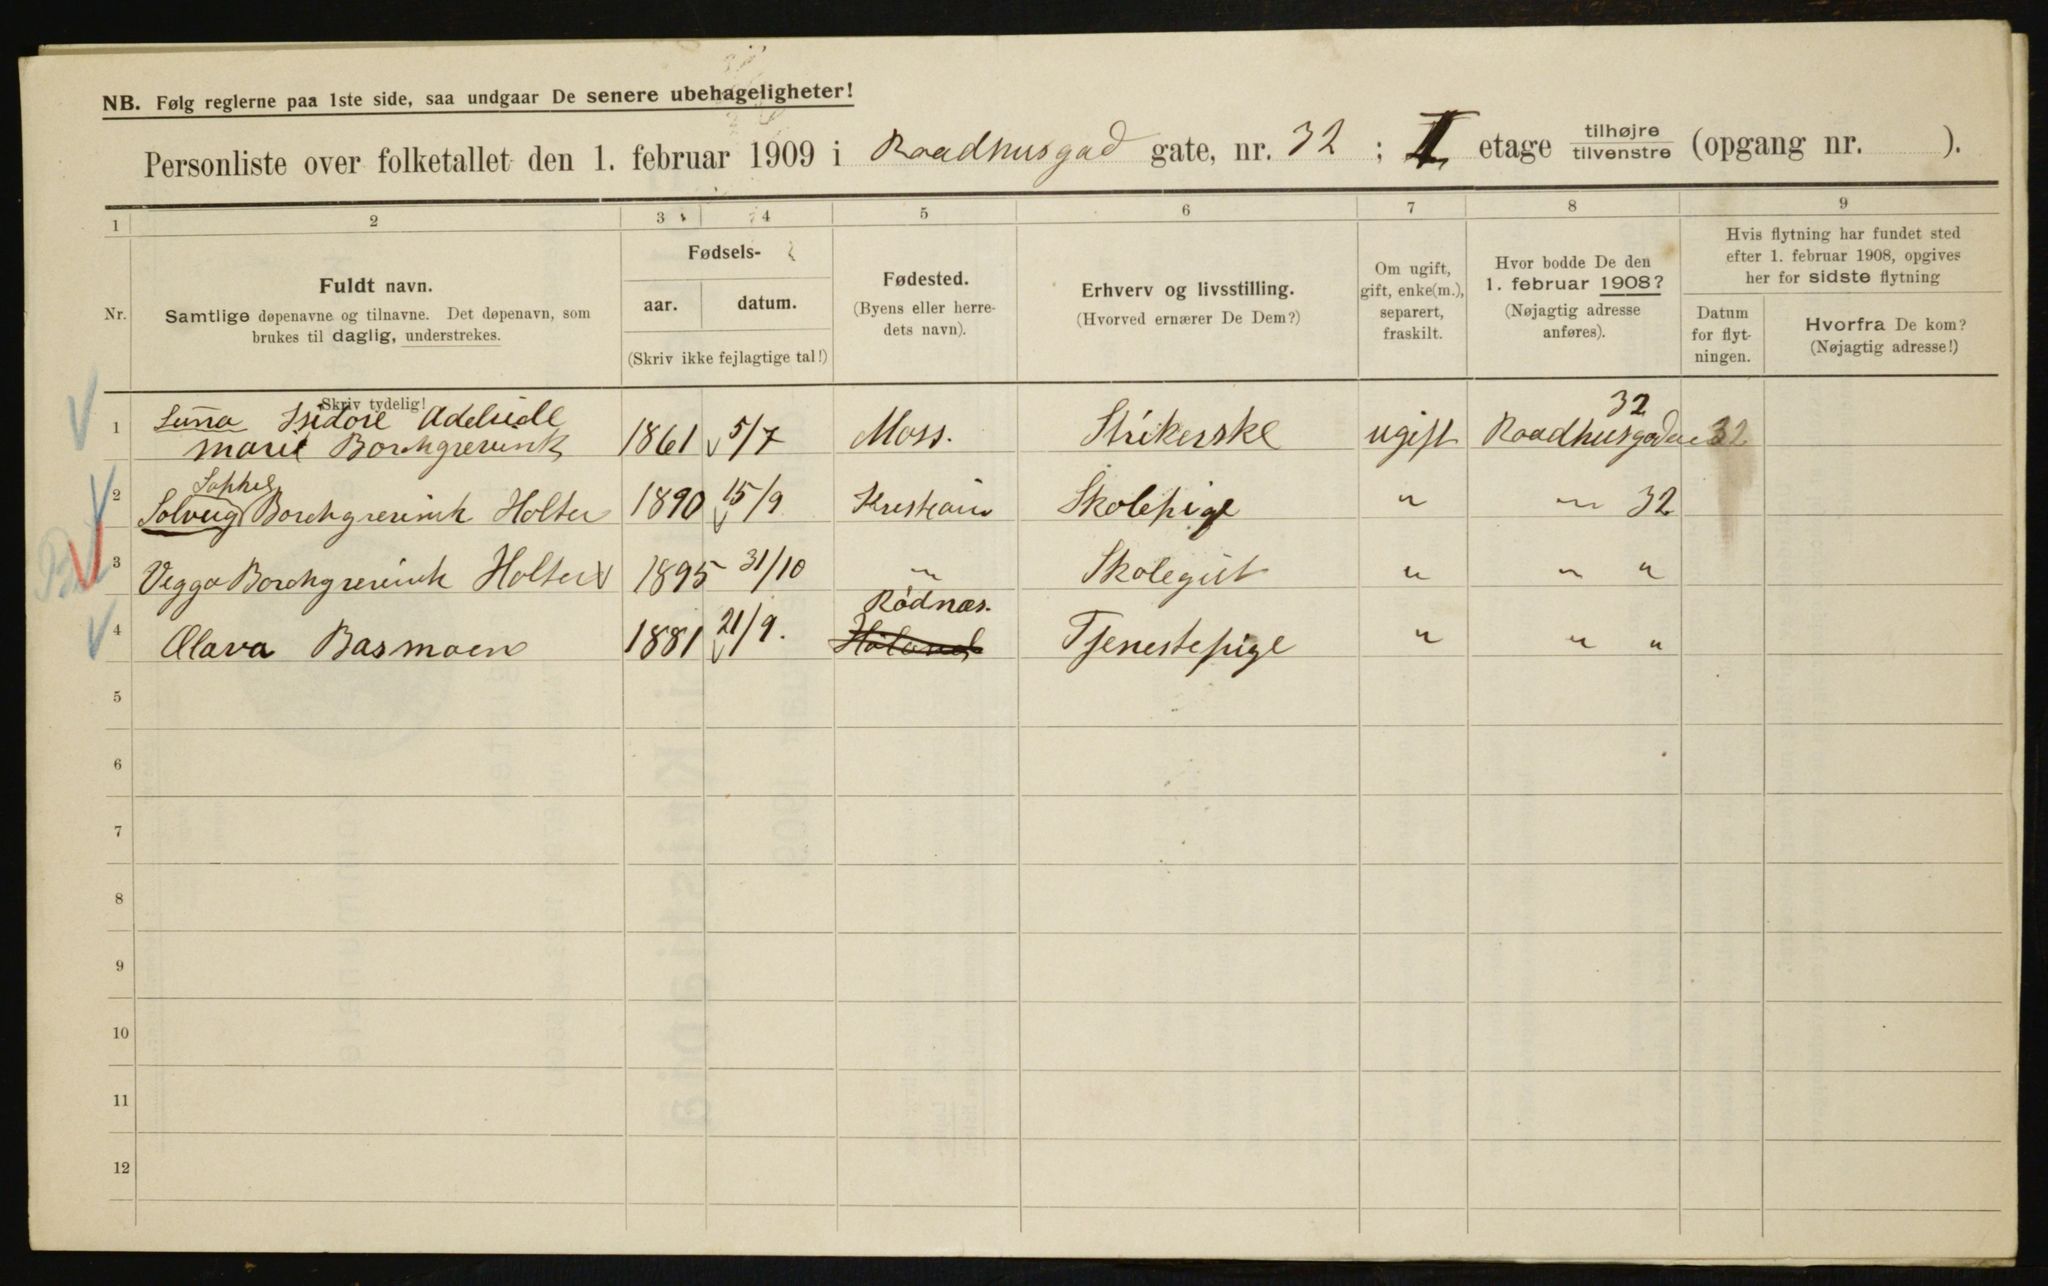 NB. Følg reglerne paa 1ste side, saa undgaar De senere ubehageligheter!
Personliste over folketallet den 1. februar 1909 i Raadhusgad gate, nr. 32 ; I etage tilhøjre tilvenstre (opgang nr. ).
1 2 3 4 5 6 7 8 9
Nr.
Fuldt navn.
Samtlige døpenavne og tilnavne. Det døpenavn, som
brukes til daglig, understrekes.
Skriv tydelig!
Fødsels-
aar. datum.
(Skriv ikke fejlagtige tal!)
Fødested.
(Byens eller herre-
dets navn).
Erhverv og livsstilling.
(Hvorved ernærer De Dem?)
Om ugift,
gift, enke(m.),
separert,
fraskilt.
Hvor bodde De den
1. februar 1908?
(Nøjagtig adresse
anføres).
Hvis flytning har fundet sted
efter 1. februar 1908, opgives
her for sidste flytning
Datum
for flyt-
ningen.
Hvorfra De kom?
(Nøjagtig adresse!)
Isidore Adelaide 32
1 Marie Borchgrevink 1861 5/7 Moss. Strikerske ugift Raadhusgaden 32
Sophie
2 Solveig Borchgrevink Holter 1890 15/9 Skolepige " " 32
3 Viggo Borchgrevink Holter 1895 31/10 " Skolegut " " "
Rødnæs.
4 Olava Basmoen 1881 21/9. Høland Tjenestepige " " "
5
6
7
8
9
10
11
12